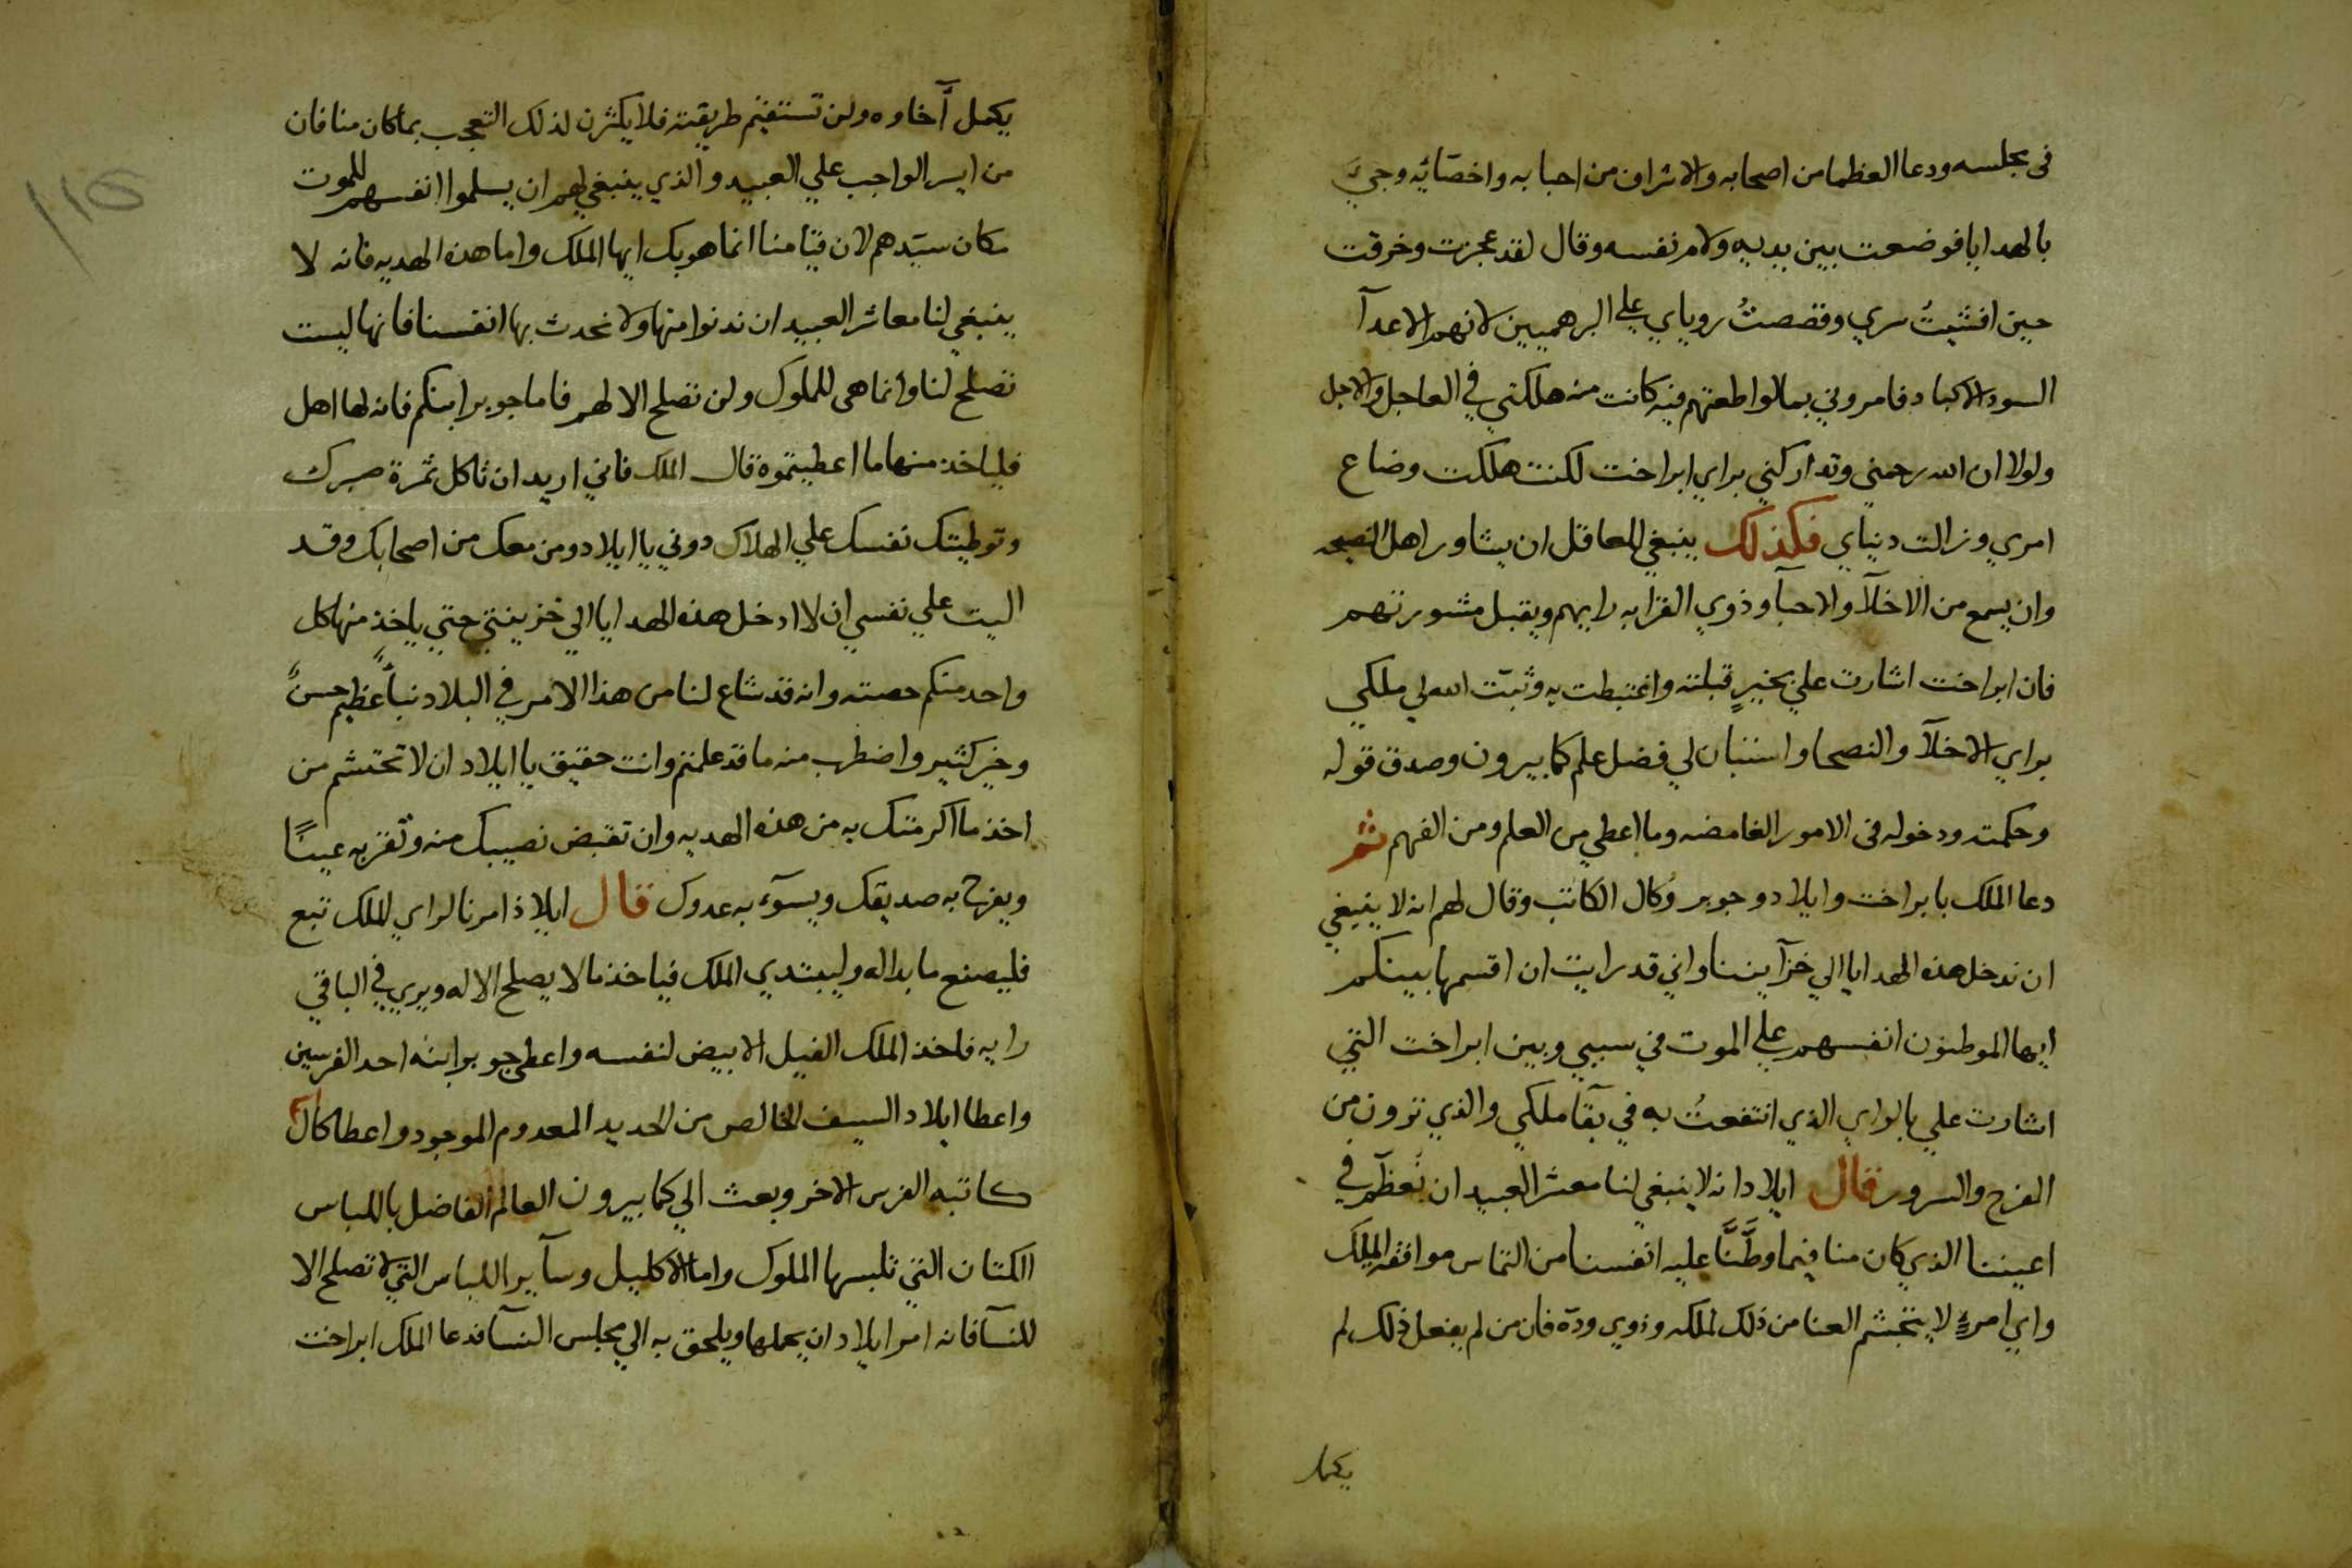 فى مجلسه ودعا العظما من اصحابه والاشراف من احبابه واخصّائِه وجيَ
بالهدايا فوضعت بين يديه ولام نفسه وقال لقد عجزت وخرقت
حين افشيتُ سري وقصصتُ روياي علي البرهميين لانهم الاعدآ
السود الاكباد فامروني بما لو اطعتهم فيه كانت منه هلكتي في العاجل والاجل
ولولا ان الله رحمني وتداركني براي ابراخت لكنت هلكت وضاع
امري وزالت دنياي فكذلك ينبغي للعاقل ان يشاور اهل النصيحه
وان يسمع من الاخلآ والاحبآ وذوي القرابه رايهم ويقبل مشورتهم
فان ابراخت اشارت علي بخيرٍ قبلته واغتبطت به وثبّت الله لي ملكي
براي الاخلآ والنصحا واستبان لي فضل علم كابيرون وصدق قوله
وحكمته ودخوله فى الامور الغامضه وما اعطي من العلم ومن الفهم ثم
دعا الملك بابراخت وايلاد وجوبر وكال الكاتب وقال لهم انه لا ينبغي
ان ندخل هذه الهدايا الي خزآيننا واني قد رايت ان اقسمها بينكم
ايها الموطنون انفسهم علي الموت في سببي وبين ابراخت التي
اشارت علي بالراي الذي انتفعتُ به في بقآ ملكي والذي ترون من
الفرح والسرور فقال ايلاد انه لا ينبغي لنا معشر العبيد ان نُعظّم في
اعيننا الذي كان منا فيما وطَّنَّا عليه انفسنا من التماس موافقه الملك
واي امرءٍ لا يتجشم العنا من ذلك لملكه وذوي ودّه فان من لم يفعل ذلك لم
يكمل
يكمل آخاوه ولن تستقيم طريقته فلا يكثرن لذلك التعجب بما كان منا فان
من ايسر الواجب علي العبيد والذي ينبغي لهم ان يسلموا انفسهم للموت
مكان سيّدهم لان قيامنا انما هو بك ايها الملك واما هذه الهديه فانه لا
ينبغي لنا معاشر العبيد ان ندنوا منها ولا نحدث بها انفسنا فانها ليست
تصلح لنا وانما هى للملوك ولن تصلح الا لهم فاما جوبر ابنكم فانه لها اهل
فلياخذ منها ما اعطيتموه قال الملك فاني اريد ان تاكل ثمرة صبرك
وتوطيتك نفسك علي الهلاك دوني يا ايلاد ومن معك من اصحابك وقد
اليت علي نفسي ان لا ادخل هذه الهدايا الي خزينتي حتي ياخذ منها كل
واحد منكم حصته وانه قد شاع لنا من هذا الامر في البلاد نبأً عظيم حسنً
وخير كثير واضطرب منه ما قد علمتم وانت حقيق يا ايلاد ان لا تحتشم من
اخذ ما اكرمتك به من هذه الهديه وان تقبض نصيبك منه وتقر به عينًا
ويفرح به صديقك ويسوّء به عدوك قال ايلاد امرنا لراي الملك تبع
فليصنع ما بدا له وليبتدي الملك فياخذ ما لا يصلح الا له ويري في الباقي
رايه فاخذ الملك الفيل الابيض لنفسه واعطي جوبر ابنه احد الفرسين
واعطا ايلاد السيف الخالص من الحديد المعدوم الموجود واعطا كال
كاتبه الفرس الاخر وبعث الي كمابيرون العالم الفاضل باللباس
الكتان التي تلبسها الملوك واما الاكليل وسآير اللباس التي لا تصلح الا
للنسآ فانه امر ايلاد ان يحملها ويلحق به الي مجلس النسآ فدعا الملك ابراخت